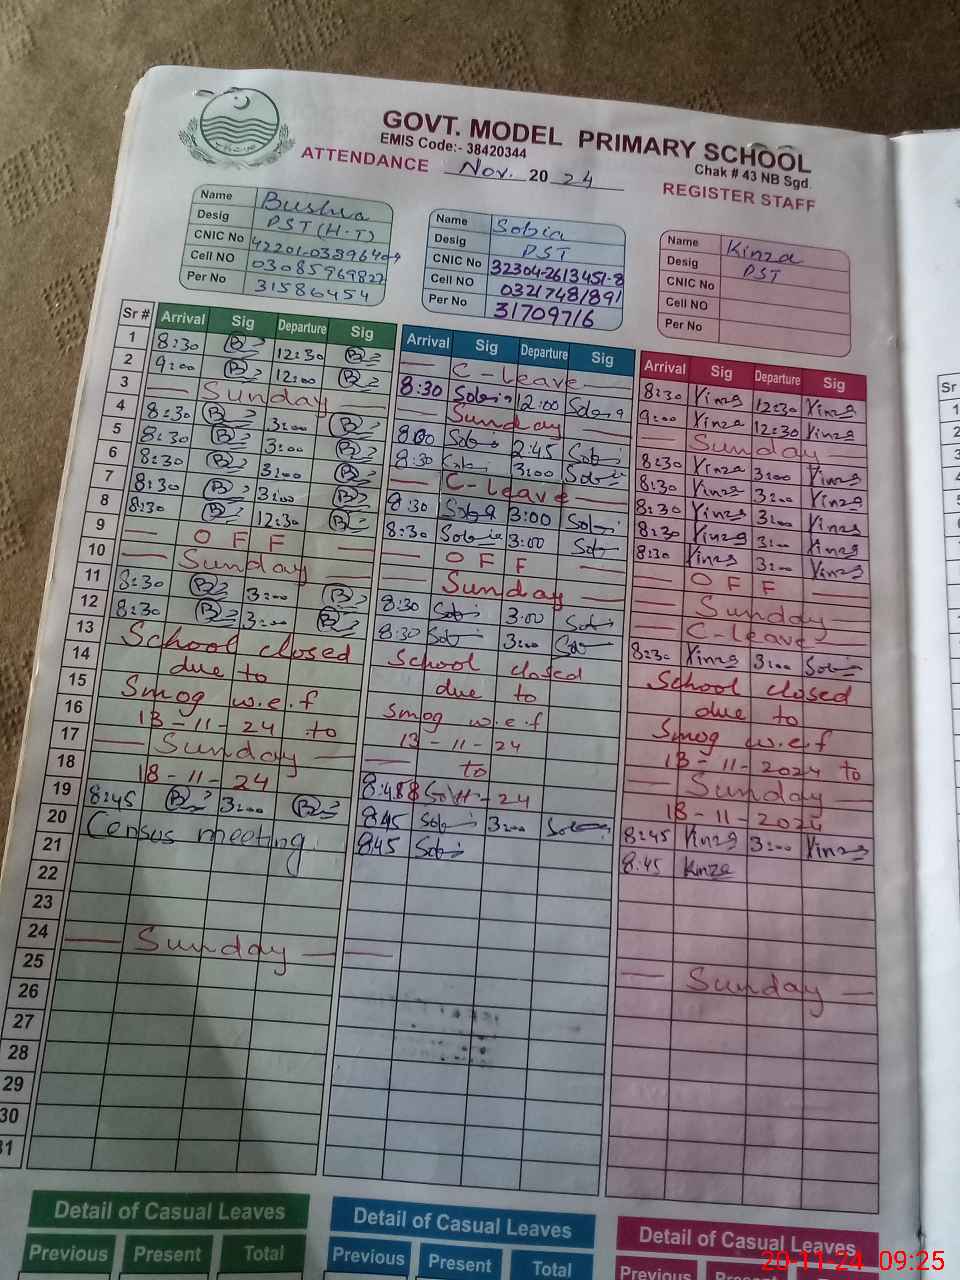 GOVT. MODEL PRIMARY SCHOOL
EMIS Code:- 38420344
Chak # 43 NB Sgd.
ATTENDANCE Nov. 2024 REGISTER STAFF
Name Bushra
Desig PST (H.T)
CNIC No
Cell NO 03085969827
Per No 31586454
Name Sobia
Desig PST
CNIC No 32304-2613451-8
Cell NO 03217481891
Per No 31709716
Name Kinza
Desig PST
CNIC No
Cell NO
Per No
Sr # Arrival Sig Departure Sig Arrival Sig Departure Sig Arrival Sig Departure Sig
1 8:30 B 12:30 B C-leave 8:30 Kinza 12:30 Kinza
2 9:00 B 12:00 B 8:30 Sobia 12:00 Sobia 9:00 Kinza 12:30 Kinza
3 Sunday Sunday Sunday
4 8:30 B 3:00 B 8:30 Sobia 2:45 Sobia 8:30 Kinza 3:00 Kinza
5 8:30 B 3:00 B 8:30 Sobia 3:00 Sobia 8:30 Kinza 3:00 Kinza
6 8:30 B 3:00 B C-leave 8:30 Kinza 3:00 Kinza
7 8:30 B 3:00 B 8:30 Sobia 3:00 Sobia 8:30 Kinza 3:00 Kinza
8 8:30 B 12:30 B 8:30 Sobia 3:00 Sob 8:30 Kinza 3:00 Kinza
9 OFF OFF OFF
10 Sunday Sunday Sunday
11 8:30 B 3:00 B 8:30 Sobi 3:00 Sobi C-leave
12 8:30 B 3:00 B 8:30 Sobi 3:00 Sobi 8:30 Kinza 3:00 Sobia
13 School closed School closed School closed
14 due to due to due to
15 Smog w.e.f Smog w.e.f Smog w.e.f
16 13-11-24 to 13-11-24 13-11-2024 to
17 Sunday to Sunday
18 18-11-24 18-11-24 18-11-2024
19 8:45 B 3:00 B 8:45 Sobi 3:00 Sobia 8:45 Kinza 3:00 Kinza
20 Census meeting 8:45 Sobi 8:45 Kinza
21
22
23
24 Sunday Sunday
25
26
27
28
29
30
31
Detail of Casual Leaves Detail of Casual Leaves Detail of Casual Leaves
Previous Present Total Previous Present Total Previous Present
Sr
1
2
3
4
20-11-24 09:25